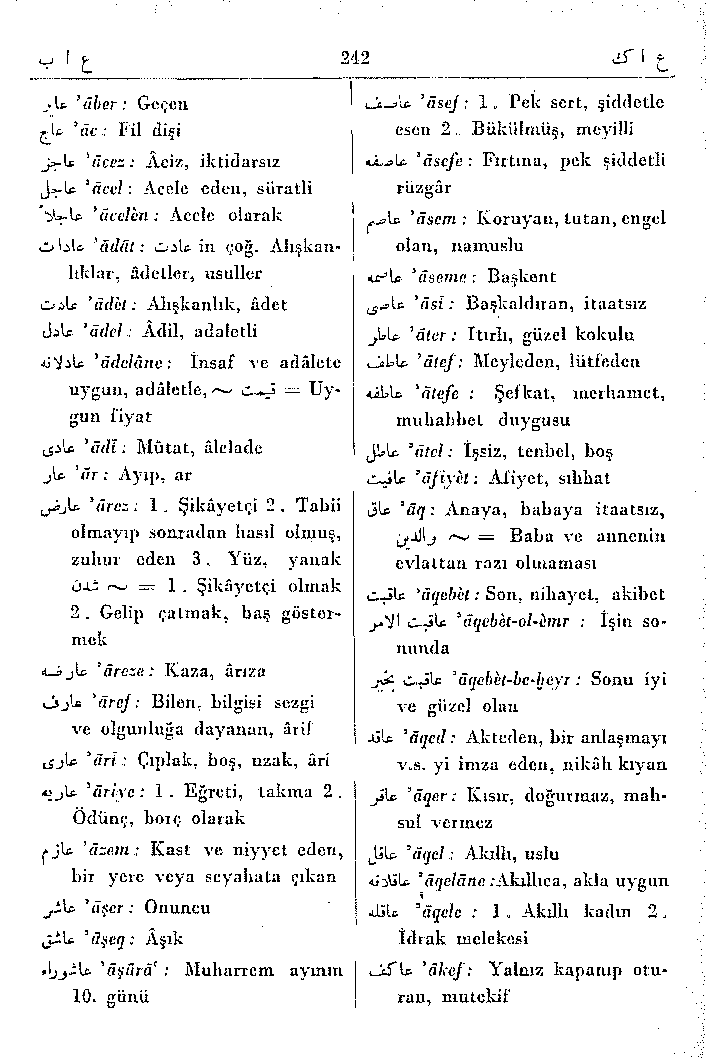 ع ا ب 242 ع ا ك
عابر ’āber : Geçen
عاج ’āc : Fil dişi
عاجز ’ācez : Âciz, iktidarsız
عاجل ’ācel : Acele eden, süratli
عاجلاً ’ācelèn : Acele olarak
عادات ’ādāt : عادت in çoğ. Alışkan-
lıklar, âdetler, usuller
عادت ’ādèt : Alışkanlık, âdet
عادل ’ādel : Âdil, adaletli
عادلانه ’ādelāne : İnsaf ve adâlete
uygun, adâletle, ~ قیمت = Uy-
gun fiyat
عادی ’ādī : Mûtat, âlelade
عار ’ār : Ayıp, ar
عارض ’ārez : 1 . Şikâyetçi 2 . Tabii
olmayıp sonradan hasıl olmuş,
zuhur eden 3 . Yüz, yanak
شدن ~ = 1 . Şikâyetçi olmak
2 . Gelip çatmak, baş göster-
mek
عارضه ’āreze : Kaza, ârıza
عارف ’āref : Bilen, bilgisi sezgi
ve olgunluğa dayanan, ârif
عاری ’ārī : Çıplak, boş, uzak, âri
عاریه ’āriye : 1 . Eğreti, takma 2 .
Ödünç, borç olarak
عازم ’āzem : Kast ve niyyet eden,
bir yere veya seyahata çıkan
عاشر ’āşer : Onuncu
عاشق ’āşeq : Âşık
عاشوراء ’āşūrā‘ : Muharrem ayının
10. günü
عاصف ’āsef : 1 . Pek sert, şiddetle
esen 2 . Bükülmüş, meyilli
عاصفه ’āsefe : Fırtına, pek şiddetli
rüzgâr
عاصم ’āsem : Koruyan, tutan, engel
olan, namuslu
عاصمه ’āseme : Başkent
عاصی ’āsī : Başkaldıran, itaatsız
عاطر ’āter : Itırlı, güzel kokulu
عاطف ’ātef : Meyleden, lütfeden
عاطفه ’ātefe : Şefkat, merhamet,
muhabbet duygusu
عاطل ’ātel : İşsiz, tenbel, boş
عافیت ’āfiyèt : Afiyet, sıhhat
عاق ’āq : Anaya, babaya itaatsız,
والدین ~ = Baba ve annenin
evlattan razı olmaması
عاقبت ’āqebèt : Son, nihayet, akibet
عاقبت الامر ’āqebèt-ol-èmr : İşin so-
nunda
عاقبت بخیر ’āqebèt-be-ḫeyr : Sonu iyi
ve güzel olan
عاقد ’āqed : Akteden, bir anlaşmayı
v.s. yi imza eden, nikâh kıyan
عاقر ’āqer : Kısır, doğurmaz, mah-
sul vermez
عاقل ’āqel : Akıllı, uslu
عاقلانه ’āqelāne :Akıllıca, akla uygun
عاقله ’āqele : 1 . Akıllı kadın 2 .
İdrak melekesi
عاكف ’ākef : Yalnız kapanıp otu-
ran, mutekif